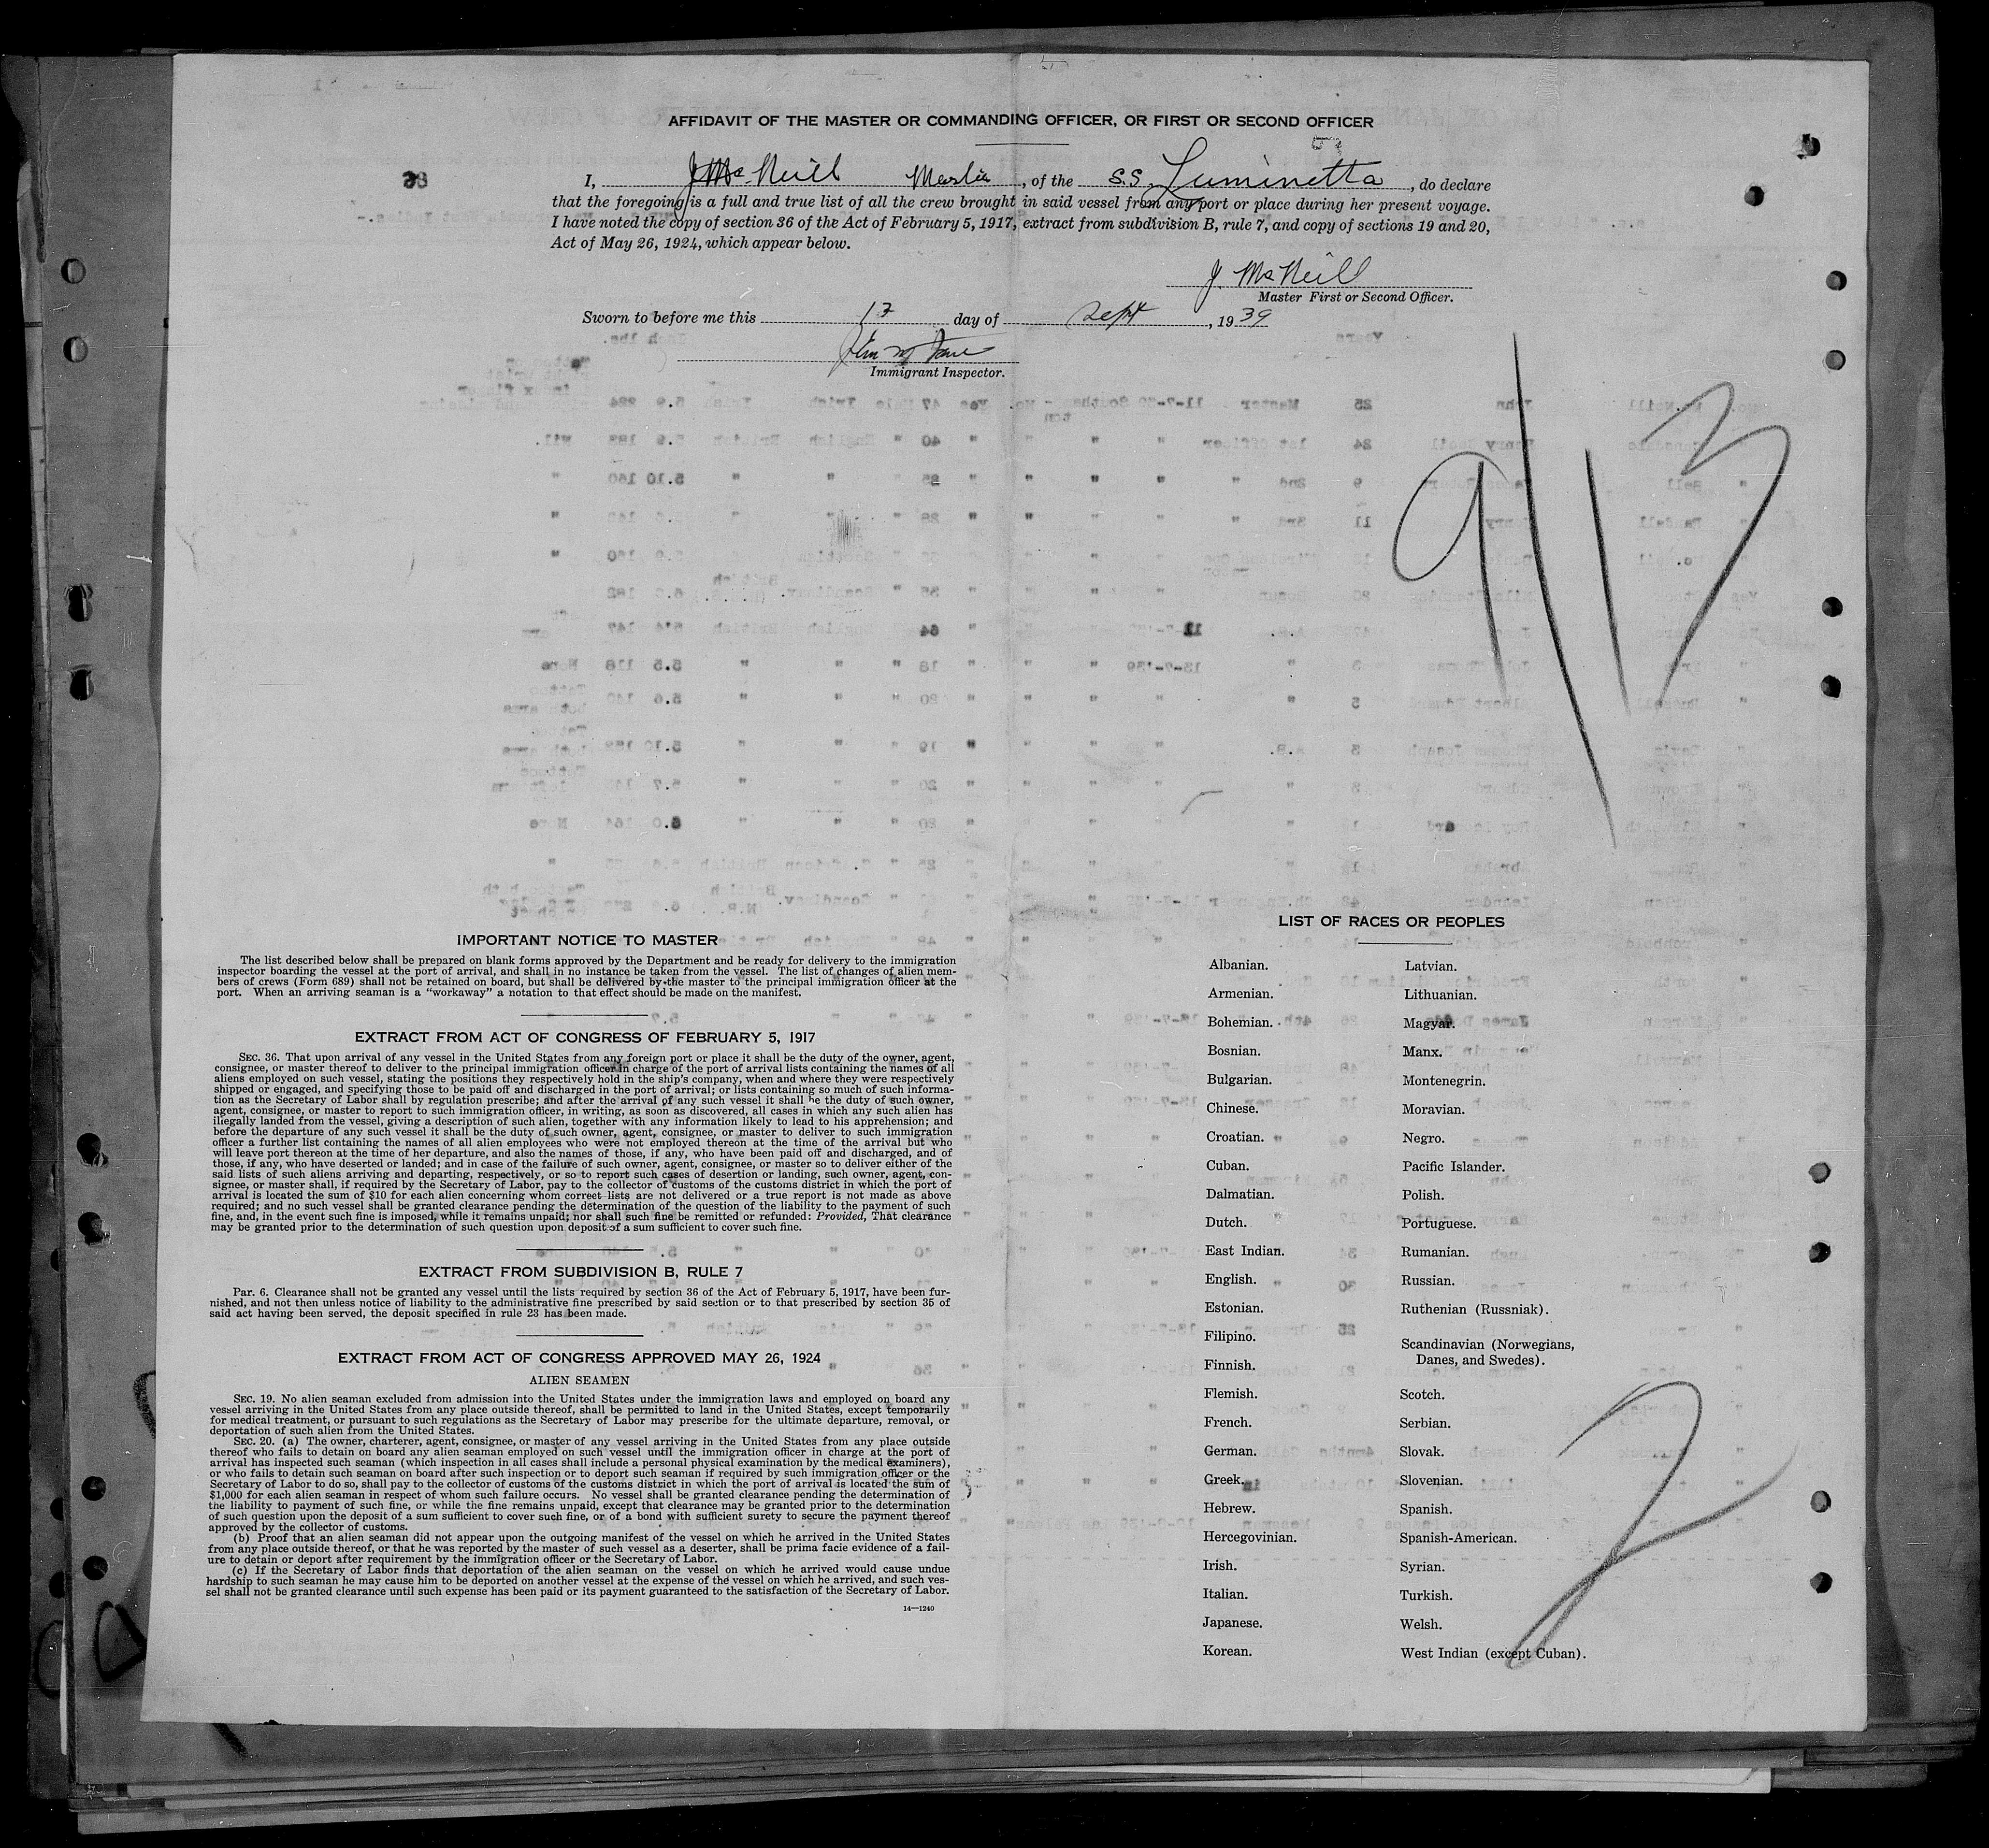 AFFIDAVIT OF THE MASTER OR COMMANDING OFFICER, OR FIRST OR SECOND OFFICER
I, J McNeill Master, of the S.S. Luminetta, do declare
that the foregoing is a full and true list of all the crew brought in said vessel from any port or place during her present voyage.
I have noted the copy of section 36 of the Act of February 5, 1917, extract from subdivision B, rule 7, and copy of sections 19 and 20,
Act of May 26, 1924, which appear below.
J. McNeill
Master First or Second Officer.
Sworn to before me this 13 day of Sept, 1939
Immigrant Inspector.
9/13
IMPORTANT NOTICE TO MASTER
The list described below shall be prepared on blank forms approved by the Department and be ready for delivery to the immigration
inspector boarding the vessel at the port of arrival, and shall in no instance be taken from the vessel. The list of changes of alien mem-
bers of crews (Form 689) shall not be retained on board, but shall be delivered by the master to the principal immigration officer at the
port. When an arriving seaman is a "workaway" a notation to that effect should be made on the manifest.
EXTRACT FROM ACT OF CONGRESS OF FEBRUARY 5, 1917
SEC. 36. That upon arrival of any vessel in the United States from any foreign port or place it shall be the duty of the owner, agent,
consignee, or master thereof to deliver to the principal immigration officer in charge of the port of arrival lists containing the names of all
aliens employed on such vessel, stating the positions they respectively hold in the ship's company, when and where they were respectively
shipped or engaged, and specifying those to be paid off and discharged in the port of arrival; or lists containing so much of such informa-
tion as the Secretary of Labor shall by regulation prescribe; and after the arrival of any such vessel it shall be the duty of such owner,
agent, consignee, or master to report to such immigration officer, in writing, as soon as discovered, all cases in which any such alien has
illegally landed from the vessel, giving a description of such alien, together with any information likely to lead to his apprehension; and
before the departure of any such vessel it shall be the duty of such owner, agent, consignee, or master to deliver to such immigration
officer a further list containing the names of all alien employees who were not employed thereon at the time of the arrival but who
will leave port thereon at the time of her departure, and also the names of those, if any, who have been paid off and discharged, and of
those, if any, who have deserted or landed; and in case of the failure of such owner, agent, consignee, or master so to deliver either of the
said lists of such aliens arriving and departing, respectively, or so to report such cases of desertion or landing, such owner, agent, con-
signee, or master shall, if required by the Secretary of Labor, pay to the collector of customs of the customs district in which the port of
arrival is located the sum of $10 for each alien concerning whom correct lists are not delivered or a true report is not made as above
required; and no such vessel shall be granted clearance pending the determination of the question of the liability to the payment of such
fine, and, in the event such fine is imposed, while it remains unpaid; nor shall such fine be remitted or refunded: Provided, That clearance
may be granted prior to the determination of such question upon deposit of a sum sufficient to cover such fine.
EXTRACT FROM SUBDIVISION B, RULE 7
Par. 6. Clearance shall not be granted any vessel until the lists required by section 36 of the Act of February 5, 1917, have been fur-
nished, and not then unless notice of liability to the administrative fine prescribed by said section or to that prescribed by section 35 of
said act having been served, the deposit specified in rule 23 has been made.
EXTRACT FROM ACT OF CONGRESS APPROVED MAY 26, 1924
ALIEN SEAMEN
SEC. 19. No alien seaman excluded from admission into the United States under the immigration laws and employed on board any
vessel arriving in the United States from any place outside thereof, shall be permitted to land in the United States, except temporarily
for medical treatment, or pursuant to such regulations as the Secretary of Labor may prescribe for the ultimate departure, removal, or
deportation of such alien from the United States.
SEC. 20. (a) The owner, charterer, agent, consignee, or master of any vessel arriving in the United States from any place outside
thereof who fails to detain on board any alien seaman employed on such vessel until the immigration officer in charge at the port of
arrival has inspected such seaman (which inspection in all cases shall include a personal physical examination by the medical examiners),
or who fails to detain such seaman on board after such inspection or to deport such seaman if required by such immigration officer or the
Secretary of Labor to do so, shall pay to the collector of customs of the customs district in which the port of arrival is located the sum of
$1,000 for each alien seaman in respect of whom such failure occurs. No vessel shall be granted clearance pending the determination of
the liability to payment of such fine, or while the fine remains unpaid, except that clearance may be granted prior to the determination
of such question upon the deposit of a sum sufficient to cover such fine, or of a bond with sufficient surety to secure the payment thereof
approved by the collector of customs.
(b) Proof that an alien seaman did not appear upon the outgoing manifest of the vessel on which he arrived in the United States
from any place outside thereof, or that he was reported by the master of such vessel as a deserter, shall be prima facie evidence of a fail-
ure to detain or deport after requirement by the immigration officer or the Secretary of Labor.
(c) If the Secretary of Labor finds that deportation of the alien seaman on the vessel on which he arrived would cause undue
hardship to such seaman he may cause him to be deported on another vessel at the expense of the vessel on which he arrived, and such ves-
sel shall not be granted clearance until such expense has been paid or its payment guaranteed to the satisfaction of the Secretary of Labor.
14—1240
LIST OF RACES OR PEOPLES
Albanian.
Armenian.
Bohemian.
Bosnian.
Bulgarian.
Chinese.
Croatian.
Cuban.
Dalmatian.
Dutch.
East Indian.
English.
Estonian.
Filipino.
Finnish.
Flemish.
French.
German.
Greek.
Hebrew.
Hercegovinian.
Irish.
Italian.
Japanese.
Korean.
Latvian.
Lithuanian.
Magyar.
Manx.
Montenegrin.
Moravian.
Negro.
Pacific Islander.
Polish.
Portuguese.
Rumanian.
Russian.
Ruthenian (Russniak).
Scandinavian (Norwegians,
Danes, and Swedes).
Scotch.
Serbian.
Slovak.
Slovenian.
Spanish.
Spanish-American.
Syrian.
Turkish.
Welsh.
West Indian (except Cuban).
2